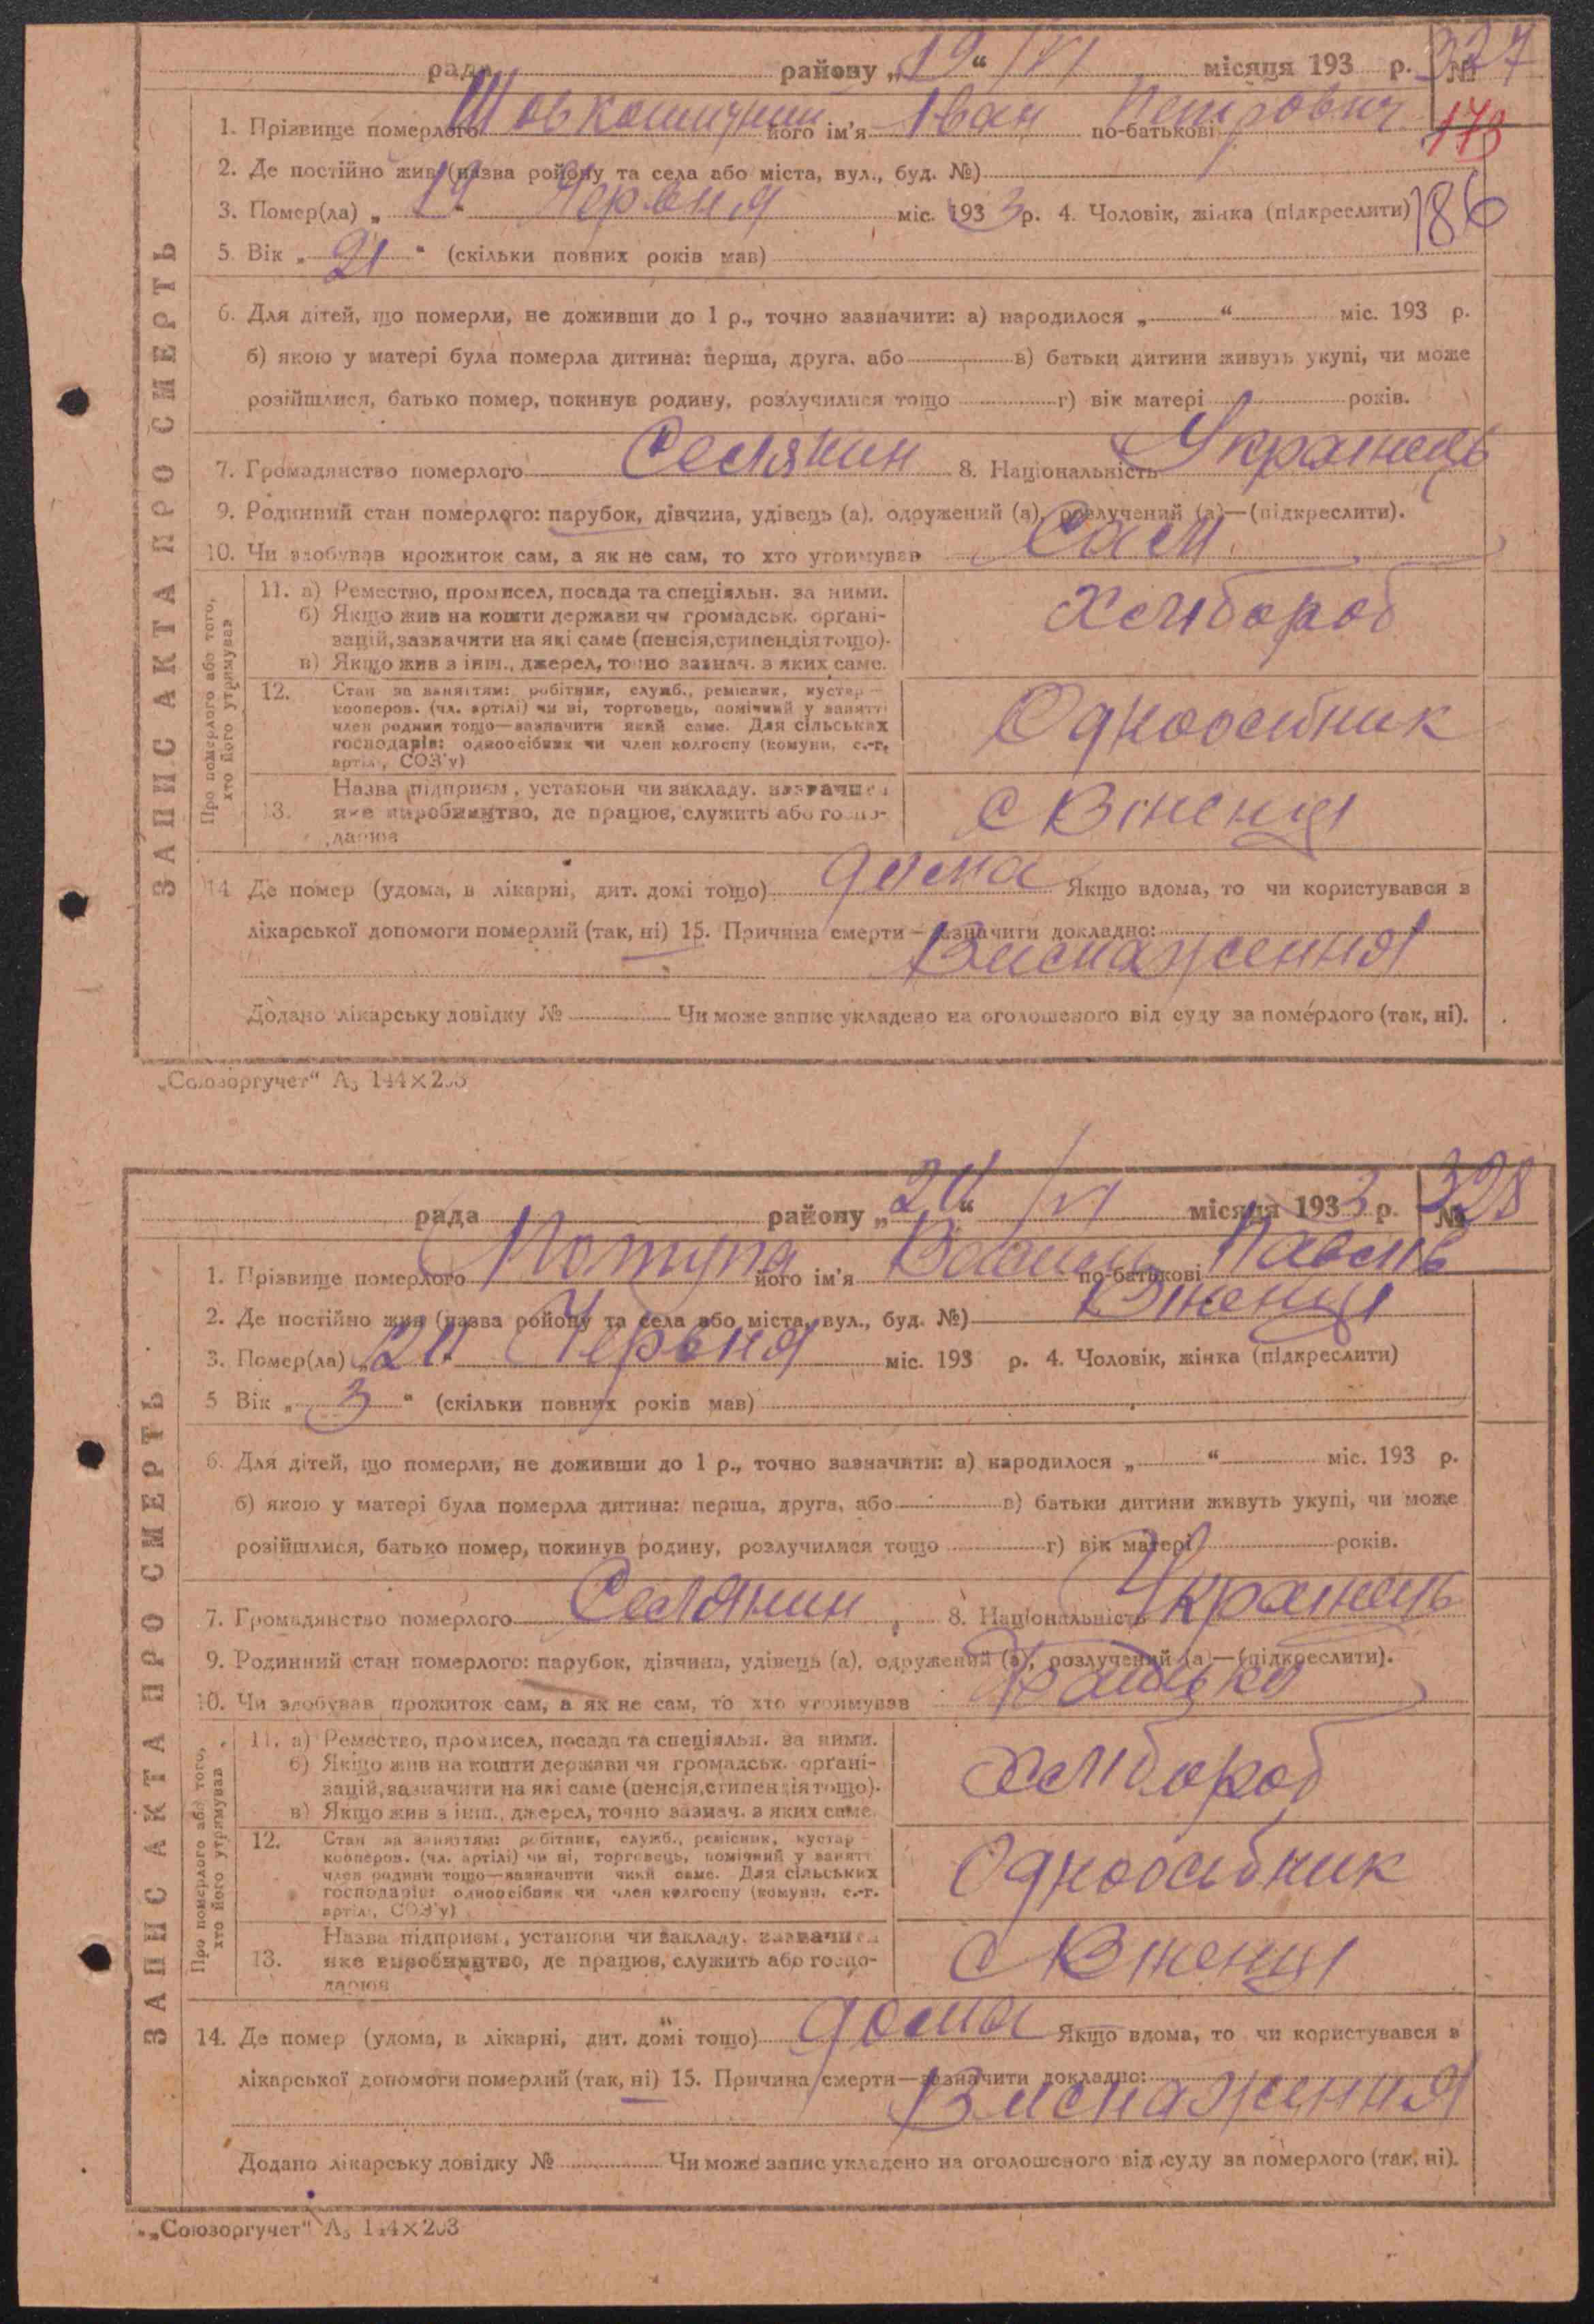 рада районy „19“ /VI місяця 193 р. № 327
1. Прізвище померлого Шовкоплясний його ім'я Іван по-батькові Петрович 173
2. Де постійно жив (назва району та села або міста, вул., буд. №)
3. Помер(ла) „19“ Червня міс. 1933 р. 4. Чоловік, жінка (підкреслити) 186
5. Вік „21“ (скільки повних років мав)
6. Для дітей, що померли, не доживши до 1 р., точно зазначити: а) народилося „ “ міс. 193 р.
б) якою у матері була померла дитина: перша, друга, або в) батьки дитини живуть укупі, чи може
розійшлися, батько помер, покинув родину, розлучилися тощо г) вік матері років.
7. Громадянство померлого Селянин 8. Національність Українець
9. Родинний стан померлого: парубок, дівчина, удівець (а), одружений (а), розлучений (а)—(підкреслити).
10. Чи здобував прожиток сам, а як не сам, то хто утримував Сам
ЗАПИС АКТА ПРО СМЕРТЬ
Про померлого або того, хто його утримував
11. а) Ремество, промисел, посада та спеціяльн. за ними.
б) Якщо жив на кошти держави чи громадськ. органі-
зацій, зазначити на які саме (пенсія, стипендія тощо).
в) Якщо жив з інш., джерел, точно зазнач. з яких саме.
Хлібороб
12. Стан за заняттям: робітник, служб., ремісник, кустар —
кооперов. (чл. артілі) чи ні, торговець, помічний у занятті
член родини тощо—зазначити який саме. Для сільських
господарів: одноосібник чи член колгоспу (комуни, с.-г.
артілі, СОЗ'у)
Одноосібник
13. Назва підприєм., установи чи закладу, зазначити
яке виробництво, де працює, служить або госпо-
дарює
с Віненці
14. Де помер (удома, в лікарні, дит. домі тощо) дома Якщо вдома, то чи користувався з
лікарської допомоги померлий (так, ні) 15. Причина смерти — зазначити докладно:
Виснаження
Додано лікарську довідку № Чи може запис укладено на оголошеного від суду за померлого (так, ні).
„Союзоргучет“ А₅ 144×203
рада району „20“ /VI місяця 1933 р. № 328
1. Прізвище померлого його ім'я Василь по-батькові Павлів
2. Де постійно жив (назва району та села або міста, вул., буд. №) Віненці
3. Помер(ла) „20“ Червня міс. 193 р. 4. Чоловік, жінка (підкреслити)
5 Вік „3“ (скільки повних років мав)
6. Для дітей, що померли, не доживши до 1 р., точно зазначити: а) народилося „ “ міс. 193 р.
б) якою у матері була померла дитина: перша, друга, або в) батьки дитини живуть укупі, чи може
розійшлися, батько помер, покинув родину, розлучилися тощо г) вік матері років.
7. Громадянство померлого Селянин 8. Національність Українець
9. Родинний стан померлого: парубок, дівчина, удівець (а), одружений (а), розлучений (а)—(підкреслити).
10. Чи здобував прожиток сам, а як не сам, то хто утримував Батько
ЗАПИС АКТА ПРО СМЕРТЬ
Про померлого або того, хто його утримував
11. а) Ремество, промисел, посада та спеціяльн. за ними.
б) Якщо жив на кошти держави чи громадськ. органі-
зацій, зазначити на які саме (пенсія, стипендія тощо).
в) Якщо жив з інш., джерел, точно зазнач. з яких саме.
Хлібороб
12. Стан за заняттям: робітник, служб., ремісник, кустар —
кооперов. (чл. артілі) чи ні, торговець, помічний у занятті
член родини тощо—зазначити який саме. Для сільських
господарів: одноосібник чи член колгоспу (комуни, с.-г.
артілі, СОЗ'у)
Одноосібник
13. Назва підприєм., установи чи закладу, зазначити
яке виробництво, де працює, служить або госпо-
дарює
с Віненці
14. Де помер (удома, в лікарні, дит. домі тощо) дома Якщо вдома, то чи користувався з
лікарської допомоги померлий (так, ні) 15. Причина смерти—зазначити докладно:
Виснаження
Додано лікарську довідку № Чи може запис укладено на оголошеного від суду за померлого (так, ні).
„Союзоргучет“ А₅ 144×203